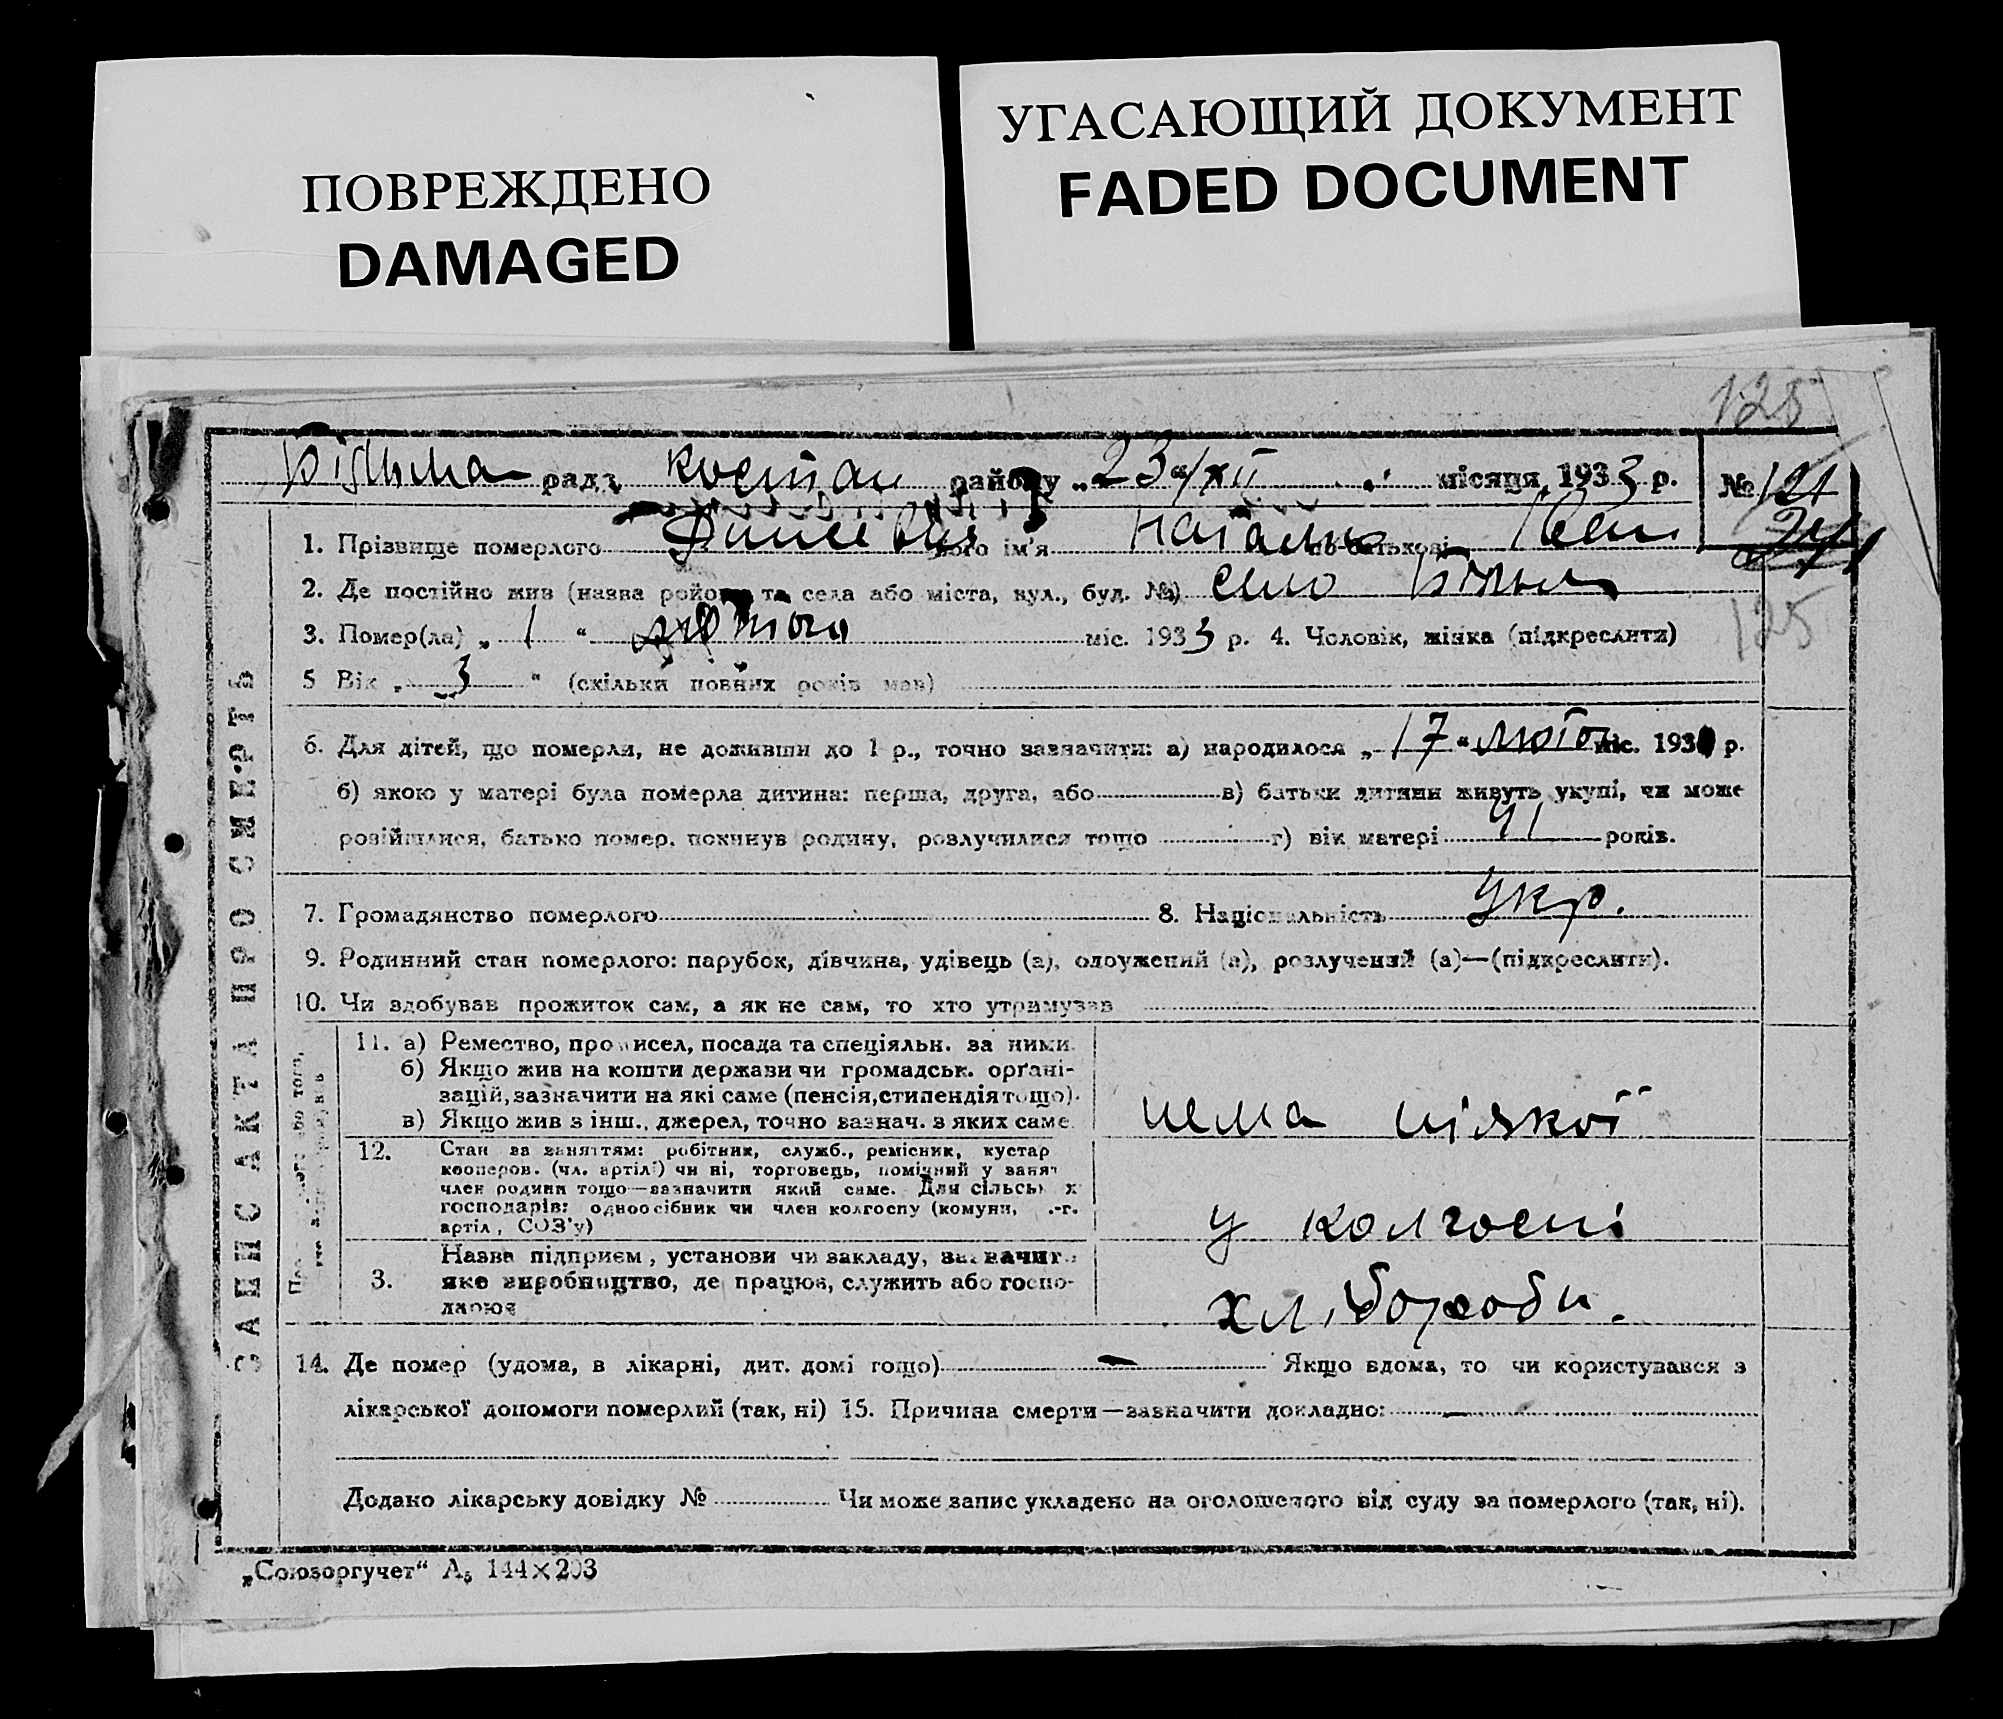 ПОВРЕЖДЕНО
DAMAGED
УГАСАЮЩИЙ ДОКУМЕНТ
FADED DOCUMENT
125
рада районy „23 XII місяця 1933 р. № 121
1. Прізвище померлого його ім'я Наталка по-батькові
2. Де постійно жив (назва району та села або міста, вул., буд. №) село
3. Помер(ла) „1“ лютого міс. 1933 р. 4. Чоловік, жінка (підкреслити)
125
5 Вік „3“ (скільки повних років мав)
6. Для дітей, що померли, не доживши до 1 р., точно зазначити: а) народилося „17“ лютого міс. 193 р.
б) якою у матері була померла дитина: перша, друга, або в) батьки дитини живуть укупі, чи може
розійшлися, батько помер, покинув родину, розлучилися тощо г) вік матері 41 років.
7. Громадянство померлого 8. Національність Укр.
9. Родинний стан померлого: парубок, дівчина, удівець (а), одружений (а), розлучений (а)—(підкреслити).
10. Чи здобував прожиток сам, а як не сам, то хто утримував
11. а) Ремество, промисел, посада та спеціяльн. за ними.
б) Якщо жив на кошти держави чи громадськ. орґані-
зацій, зазначити на які саме (пенсія, стипендія тощо).
в) Якщо жив з інш., джерел, точно зазнач. з яких саме
нема ніякої
12. Стан за заняттям: робітник, служб., ремісник, кустар
кооперов. (чл. артілі) чи ні, торговець, помічний у занят
член родини тощо—зазначити який саме. Для сільськ х
господарів: одноосібник чи член колгоспу (комуни, .-г.
артіл, СОЗ'у)
у колгоспі
3. Назва підприєм, установи чи закладу, зазначит
яке виробництво, де працює, служить або госпо-
дарює
хлібороби.
14. Де помер (удома, в лікарні, дит. домі тощо) — Якщо вдома, то чи користувався з
лікарської допомоги померлий (так, ні) 15. Причина смерти—зазначити докладно: —
Додано лікарську довідку № Чи може запис укладено на оголошеного від суду за померлого (так, ні).
ЗАПИС АКТА ПРО СМЕРТЬ
„Союзоргучет“ А₅ 144×203